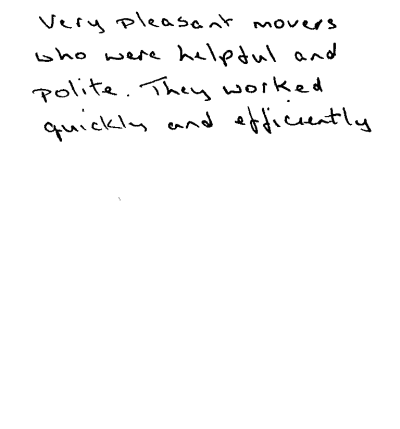 Very pleasant movers
who were helpful and
polite. They worked
quickly and efficiently